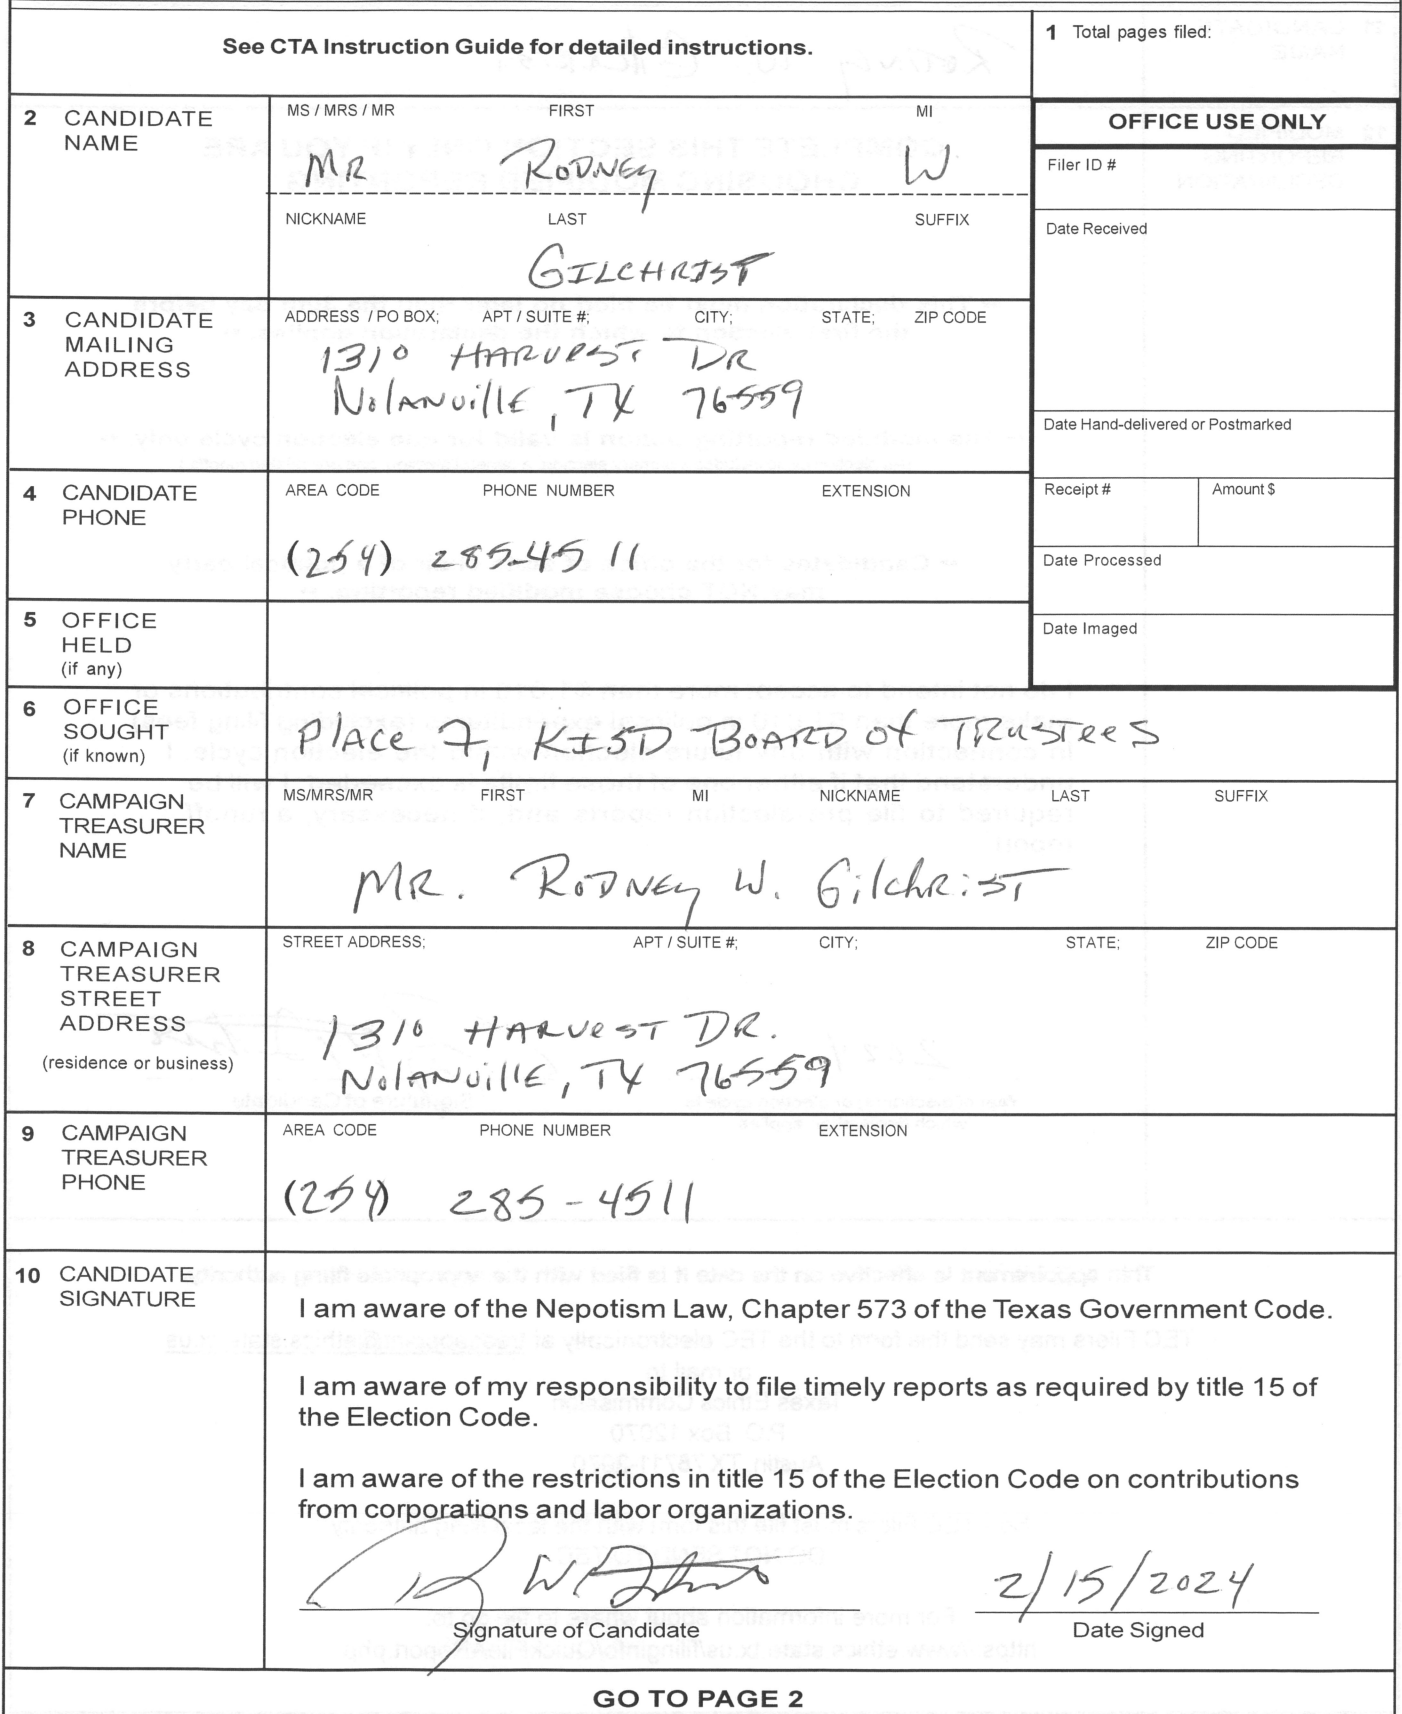 See CTA Instruction Guide for detailed instructions.
1 Total pages filed:
2 CANDIDATE NAME
MS / MRS / MR FIRST MI
MR RODNEY W
NICKNAME LAST SUFFIX
GILCHRIST
OFFICE USE ONLY
Filer ID #
Date Received
3 CANDIDATE MAILING ADDRESS
ADDRESS / PO BOX; APT / SUITE #; CITY; STATE; ZIP CODE
1310 HARVEST DR
NolANVillE, TX 76559
Date Hand-delivered or Postmarked
4 CANDIDATE PHONE
AREA CODE PHONE NUMBER EXTENSION
(254) 285-4511
Receipt # Amount $
Date Processed
5 OFFICE HELD (if any)
Date Imaged
6 OFFICE SOUGHT (if known)
PlAce 7, KISD BOARD Of TRusteeS
7 CAMPAIGN TREASURER NAME
MS/MRS/MR FIRST MI NICKNAME LAST SUFFIX
MR. RODNEY W. GilchRiST
8 CAMPAIGN TREASURER STREET ADDRESS
(residence or business)
STREET ADDRESS; APT / SUITE #; CITY; STATE; ZIP CODE
1310 HARVeST DR.
NolANVillE, TX 76559
9 CAMPAIGN TREASURER PHONE
AREA CODE PHONE NUMBER EXTENSION
(254) 285-4511
10 CANDIDATE SIGNATURE
I am aware of the Nepotism Law, Chapter 573 of the Texas Government Code.
I am aware of my responsibility to file timely reports as required by title 15 of
the Election Code.
I am aware of the restrictions in title 15 of the Election Code on contributions
from corporations and labor organizations.
2/15/2024
Signature of Candidate Date Signed
GO TO PAGE 2